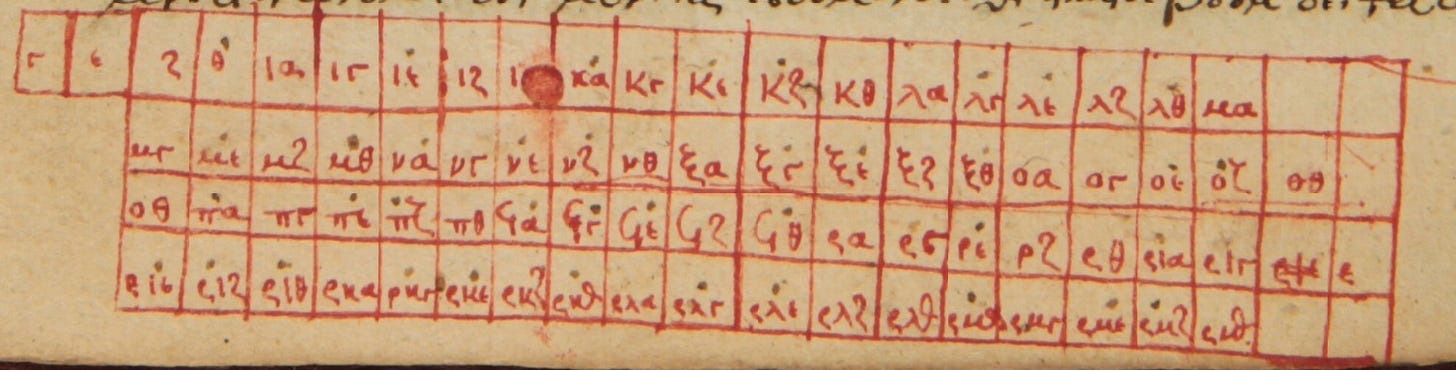 γ ε ζ θ ια ιγ ιε ιζ ι κα κγ κε κζ κθ λα λγ λε λζ λθ μα
μγ με μζ μθ να νγ νε νζ νθ ξα ξγ ξε ξζ ξθ οα ογ οε οζ οθ
οθ πα πγ πε πζ πθ ϟα ϟγ ϟε ϟζ ϟθ ρα ργ ρε ρζ ρθ ρια ριγ ριε ε
ριε ριζ ριθ ρκα ρκγ ρκε ρκζ ρκθ ρλα ρλγ ρλε ρλζ ρλθ ρμα ρμγ ρμε ρμζ ρμθ